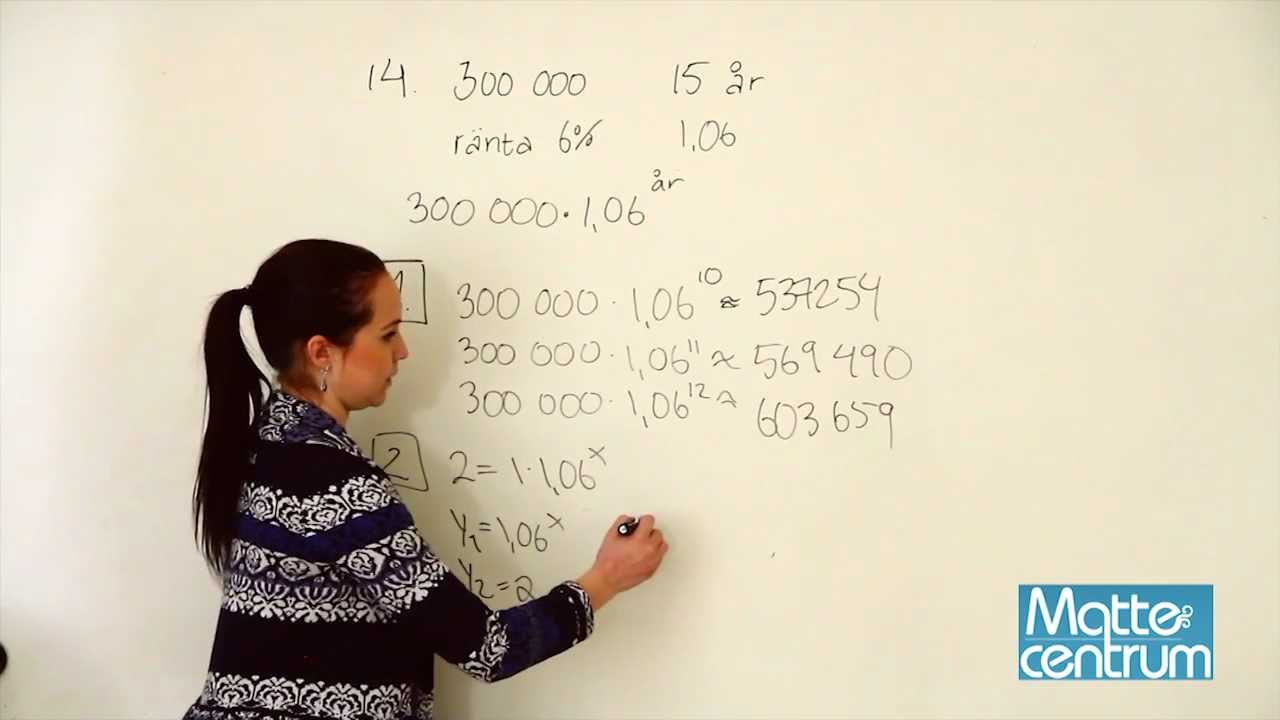 14. 300 000 15 år
ränta 6% 1,06
300 000 · 1,06^år
1. 300 000 · 1,06^10 ≈ 537254
300 000 · 1,06^11 ≈ 569 490
300 000 · 1,06^12 ≈ 603 659
2 2 = 1 · 1,06^x
y₁ = 1,06^x
y₂ = 2
Matte
centrum